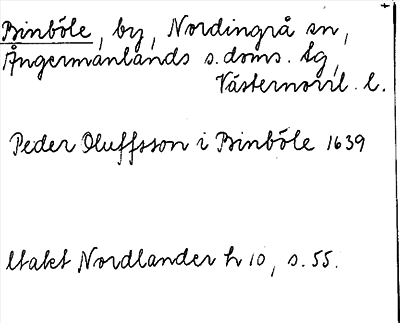 Binböle, by, Nordingrå sn,
Ångermanlands s. doms. tg,
Västernorrl. l.
Peder Oluffsson i Binböle 1639
Utakt Nordlander h 10, s. 55.